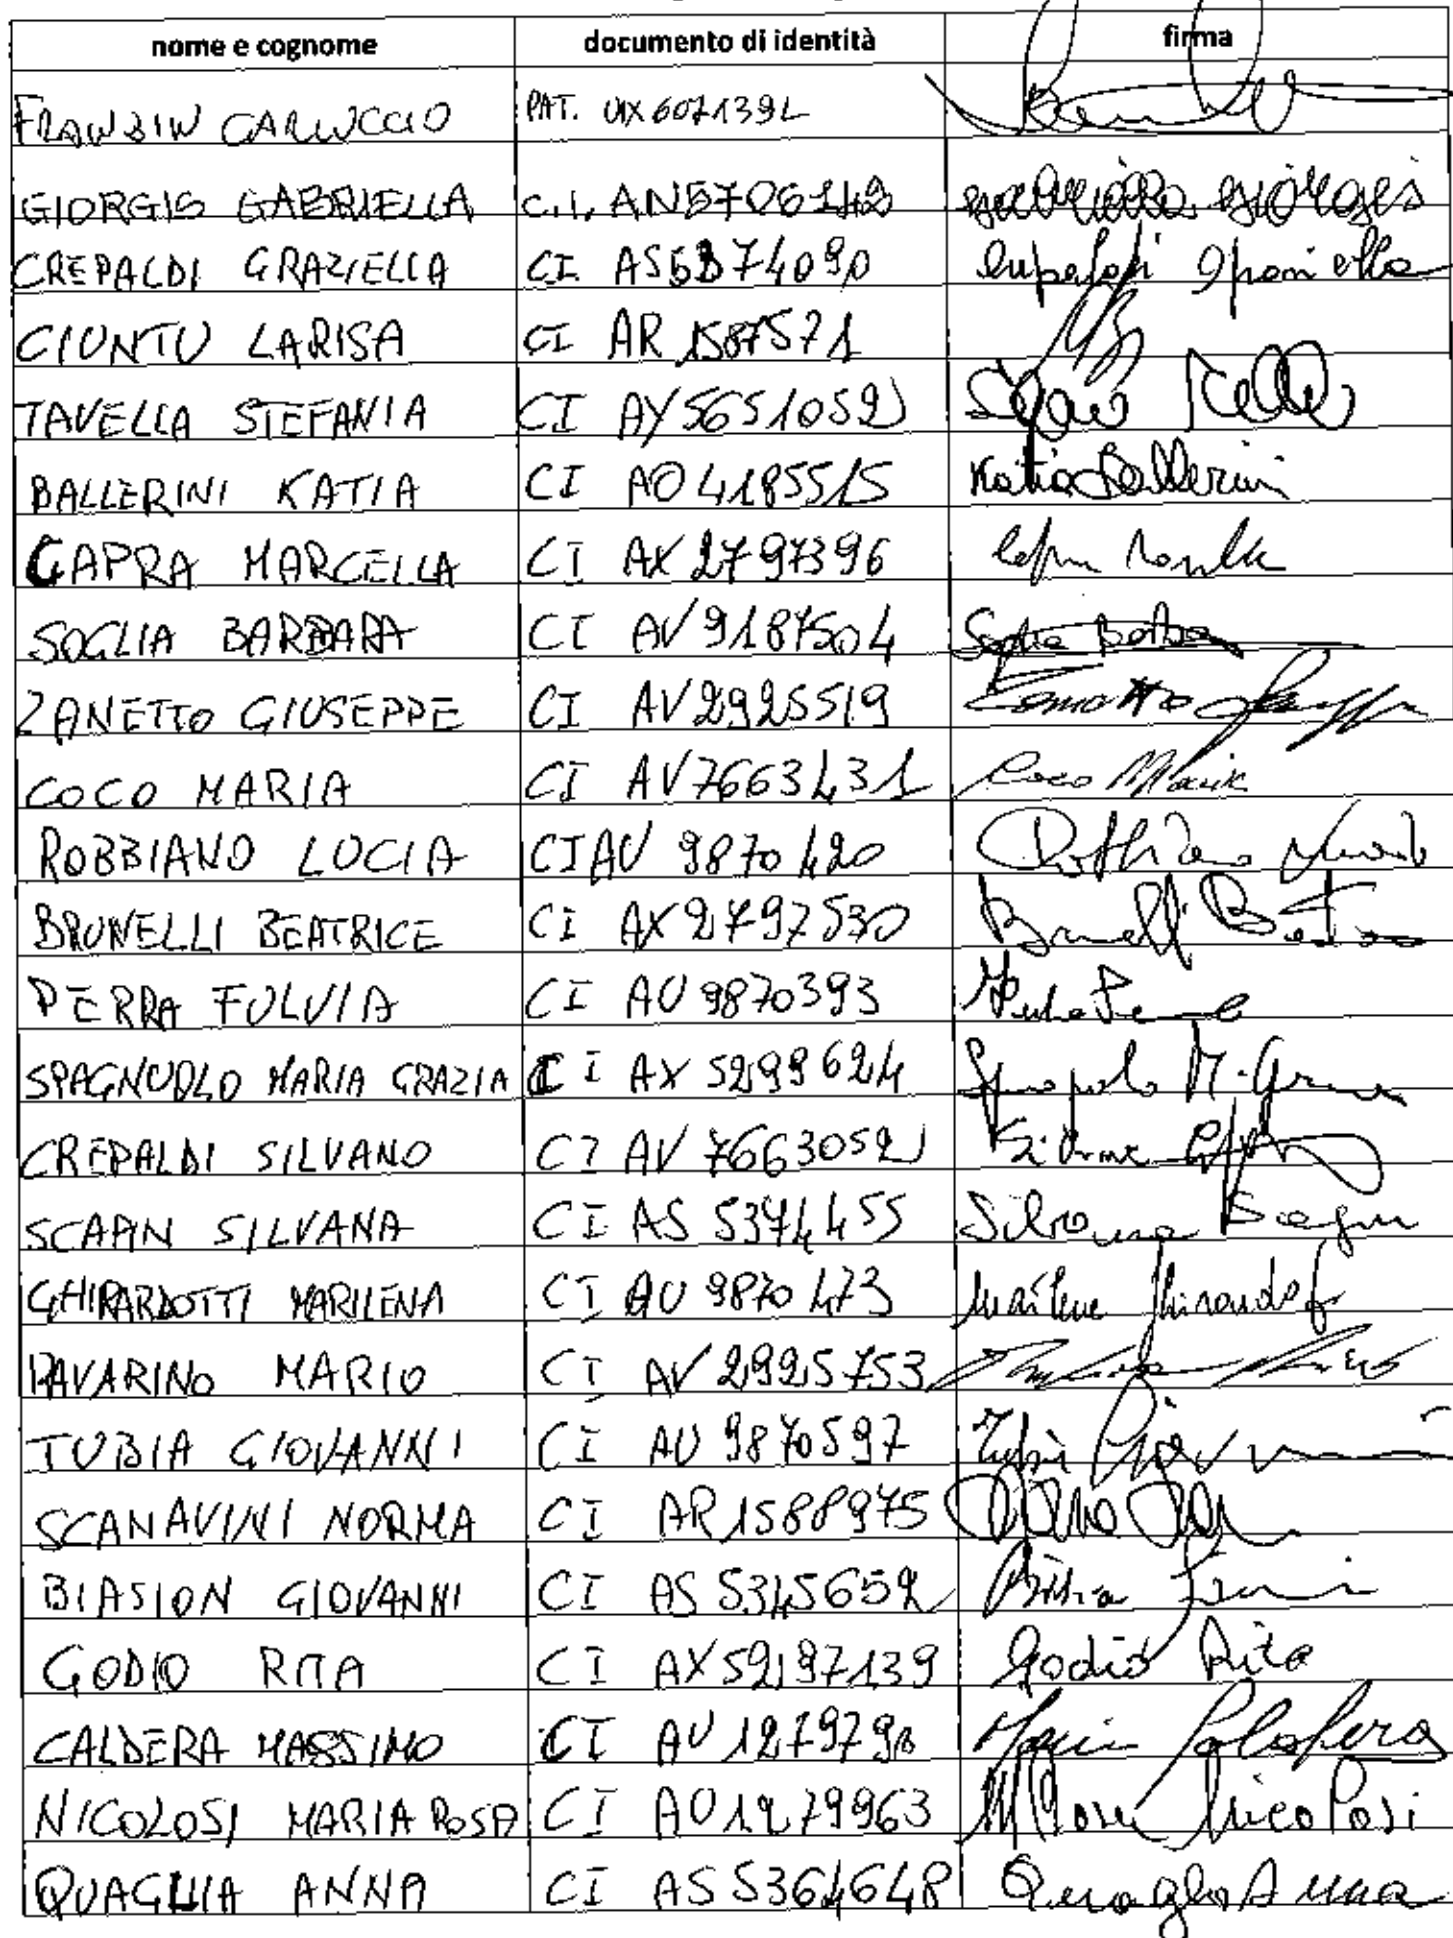 nome e cognome documento di identità firma
CARUCCIO PAT.
GIORGIS GABRIELLA C.I. Gabriella Giorgis
CREPALDI GRAZIELLA CI Crepaldi Graziella
CIUNTU LARISA CI AR 1587571
TAVELLA STEFANIA CI AY5651052
BALLERINI KATIA CI AO 4185515 Katia Ballerini
CAPRA MARCELLA CI AX 2797396 Capra Marcella
SOGLIA BARBARA CI AV 9187504 Soglia Barbara
ZANETTO GIUSEPPE CI AV2925519 Zanetto Giuseppe
COCO MARIA CI AV7663431 Coco Maria
ROBBIANO LUCIA CI AU 9870420 Robbiano Lucia
BRUNELLI BEATRICE CI AX2797530 Brunelli
PERRA FULVIA CI AU 9870393
SPAGNUOLO MARIA GRAZIA CI AX 5299624
CREPALDI SILVANO CI AV 7663052
SCAPIN SILVANA CI AS 5374455 Silvana Scapin
GHIRARDOTTI MARILENA CI AU 9870473
PAVARINO MARIO CI AV 2925753
TUBIA GIOVANNI CI AU 9870597 Tubia Giovanni
SCANAVINI NORMA CI AR 1588975
BIASION GIOVANNI CI AS 5345652
GODIO RITA CI AX 5297139 Godio Rita
CALDERA MASSIMO CI AU 1279790
NICOLOSI MARIA ROSA CI AU1279963 M Rosa Nicolosi
QUAGLIA ANNA CI AS 5364648 Quaglia Anna